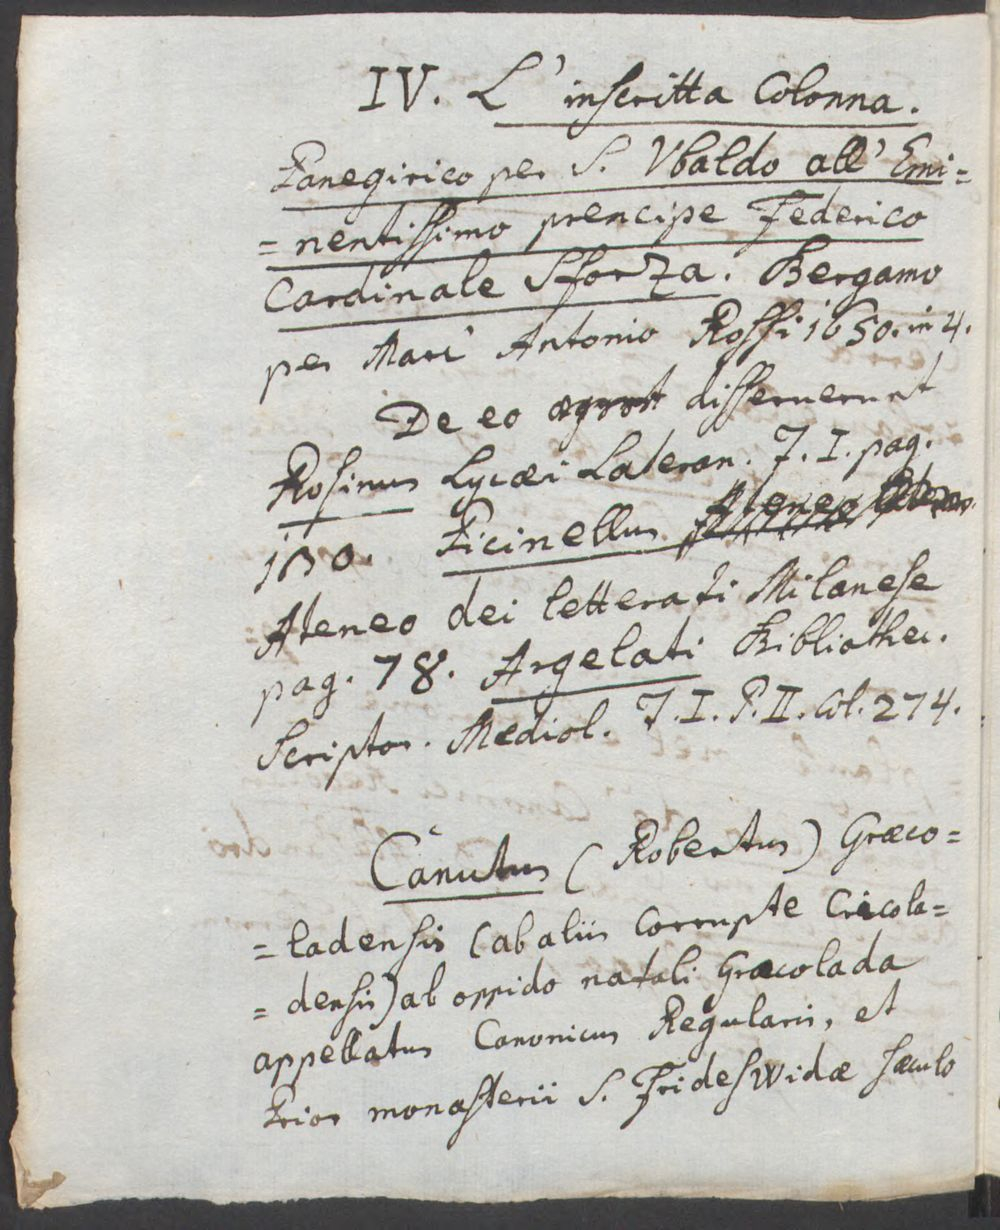 IV. L' inscritta Colonna.
Panegirico per S. Vbaldo all' Emi=
= nentissimo prencipe Federico
Cardinale Sforza. Bergamo
per Marc' Antonio Rossi 1650. in 4.
De eo disseruerunt
Rosinus Lycæi Lateran. T. I. pag.
Picinellus
Ateneo dei letterati Milanese
pag. 78. Argelati Bibliothec.
Scriptor. Mediol. T. I. P. II. Col. 274.
Canutus (Robertus) Græco=
= ladensis (ab aliis corrupte Cricola=
= densis) ab oppido natali Græcolada
appellatus Canonicus Regularis, et
Prior monasterii S. Frideswidæ sæculo